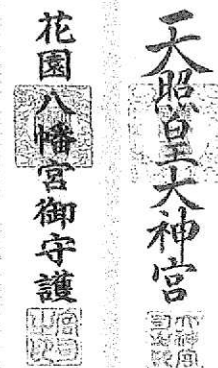 天照皇大神宮
花園八幡宮御守護